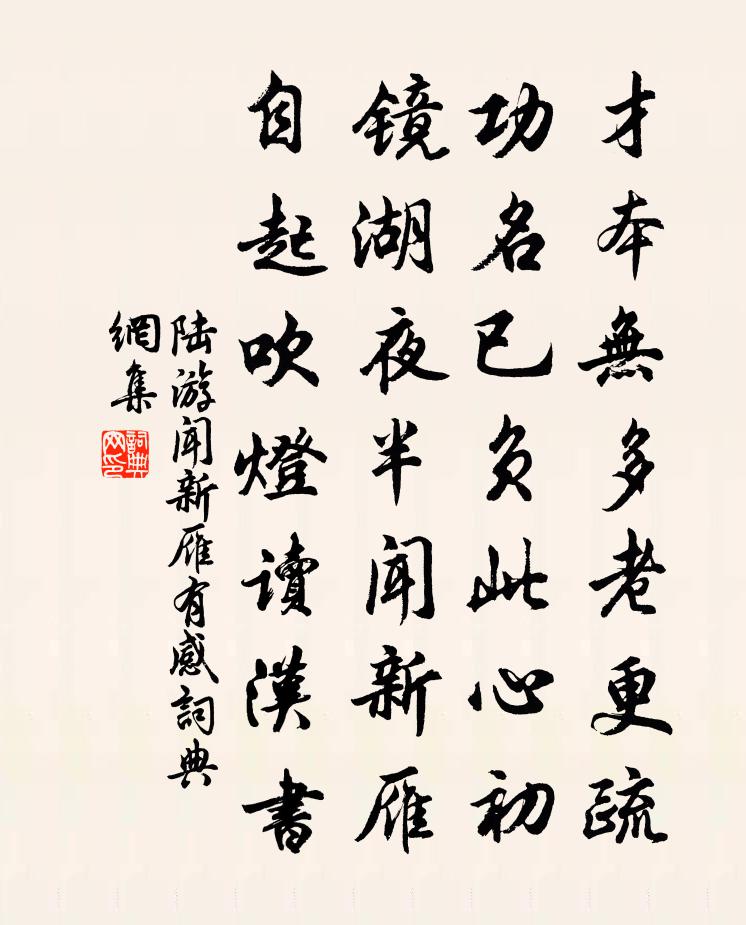 才本無多老更疏
功名已负此心初
镜湖夜半闻新雁
自起吹燈读漢書
陆游闻新雁有感詞典
網集
詞典
网印